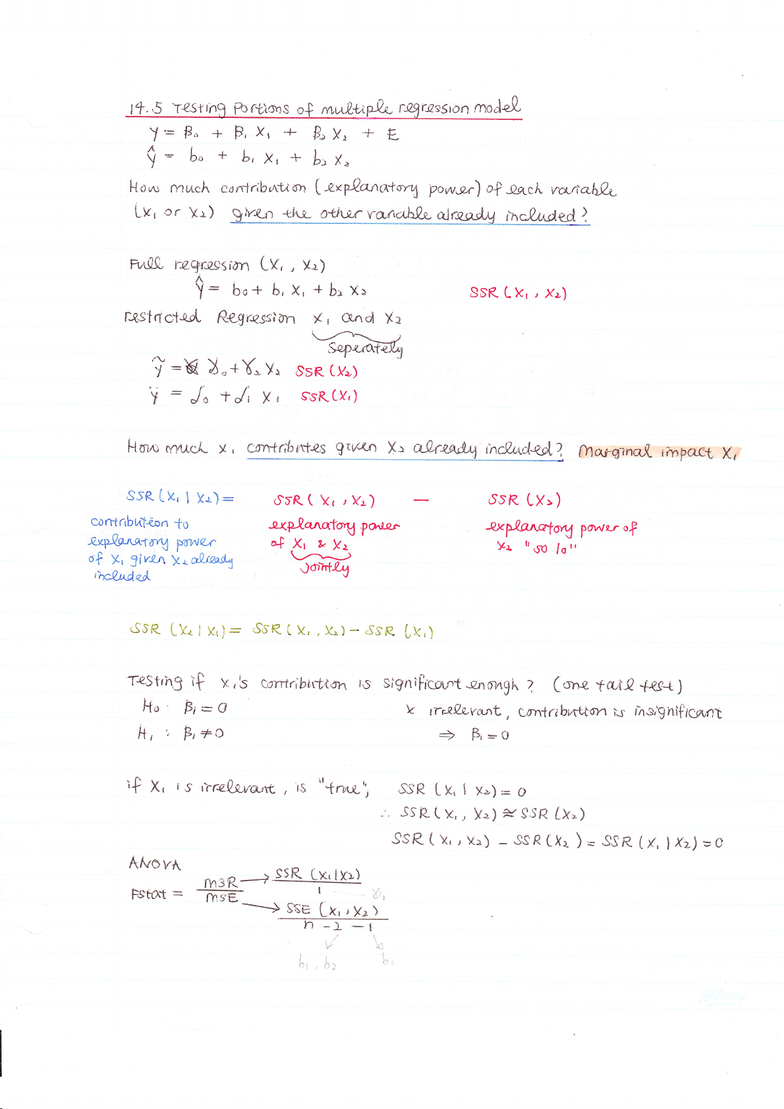 14.5 Testing Portions of multiple regression model
Y = β₀ + β₁ X₁ + β₂ X₂ + E
Ŷ = b₀ + b₁ X₁ + b₂ X₂
How much contribution (explanatory power) of each variable
(X₁ or X₂) given the other variable already included?
Full regression (X₁, X₂)
Ŷ = b₀ + b₁ X₁ + b₂ X₂ SSR (X₁, X₂)
restricted Regression X₁ and X₂
Seperately
Ỹ = γ₀ + γ₂ X₂ SSR (X₂)
Ÿ = δ₀ + δ₁ X₁ SSR (X₁)
How much X₁ contributes given X₂ already included? Marginal impact X₁
SSR (X₁ | X₂) = SSR (X₁, X₂) — SSR (X₂)
contribution to explanatory power explanatory power of
explanatory power of X₁ & X₂ X₂ "solo"
of X₁ given X₂ already jointly
included
SSR (X₂ | X₁) = SSR (X₁, X₂) - SSR (X₁)
Testing if X₁'s contribution is significant enough? (one tail test)
H₀ : β₁ = 0 X irrelevant, contribution is insignificant
H₁ : β₁ ≠ 0 ⇒ β₁ = 0
if X₁ is irrelevant, is "true", SSR (X₁ | X₂) = 0
∴ SSR (X₁, X₂) ≅ SSR (X₂)
SSR (X₁, X₂) - SSR (X₂) = SSR (X₁ | X₂) = 0
ANOVA
Fstat = MSR / MSE → SSR (X₁|X₂) / 1 X₁
→ SSE (X₁, X₂) / n - 2 - 1
b₁, b₂ b₀